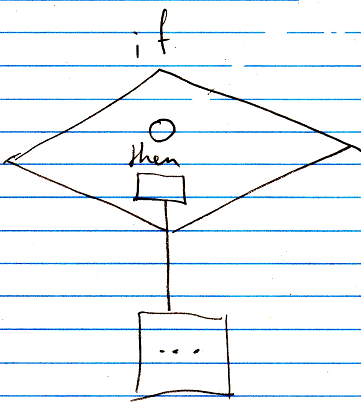 if
then
...